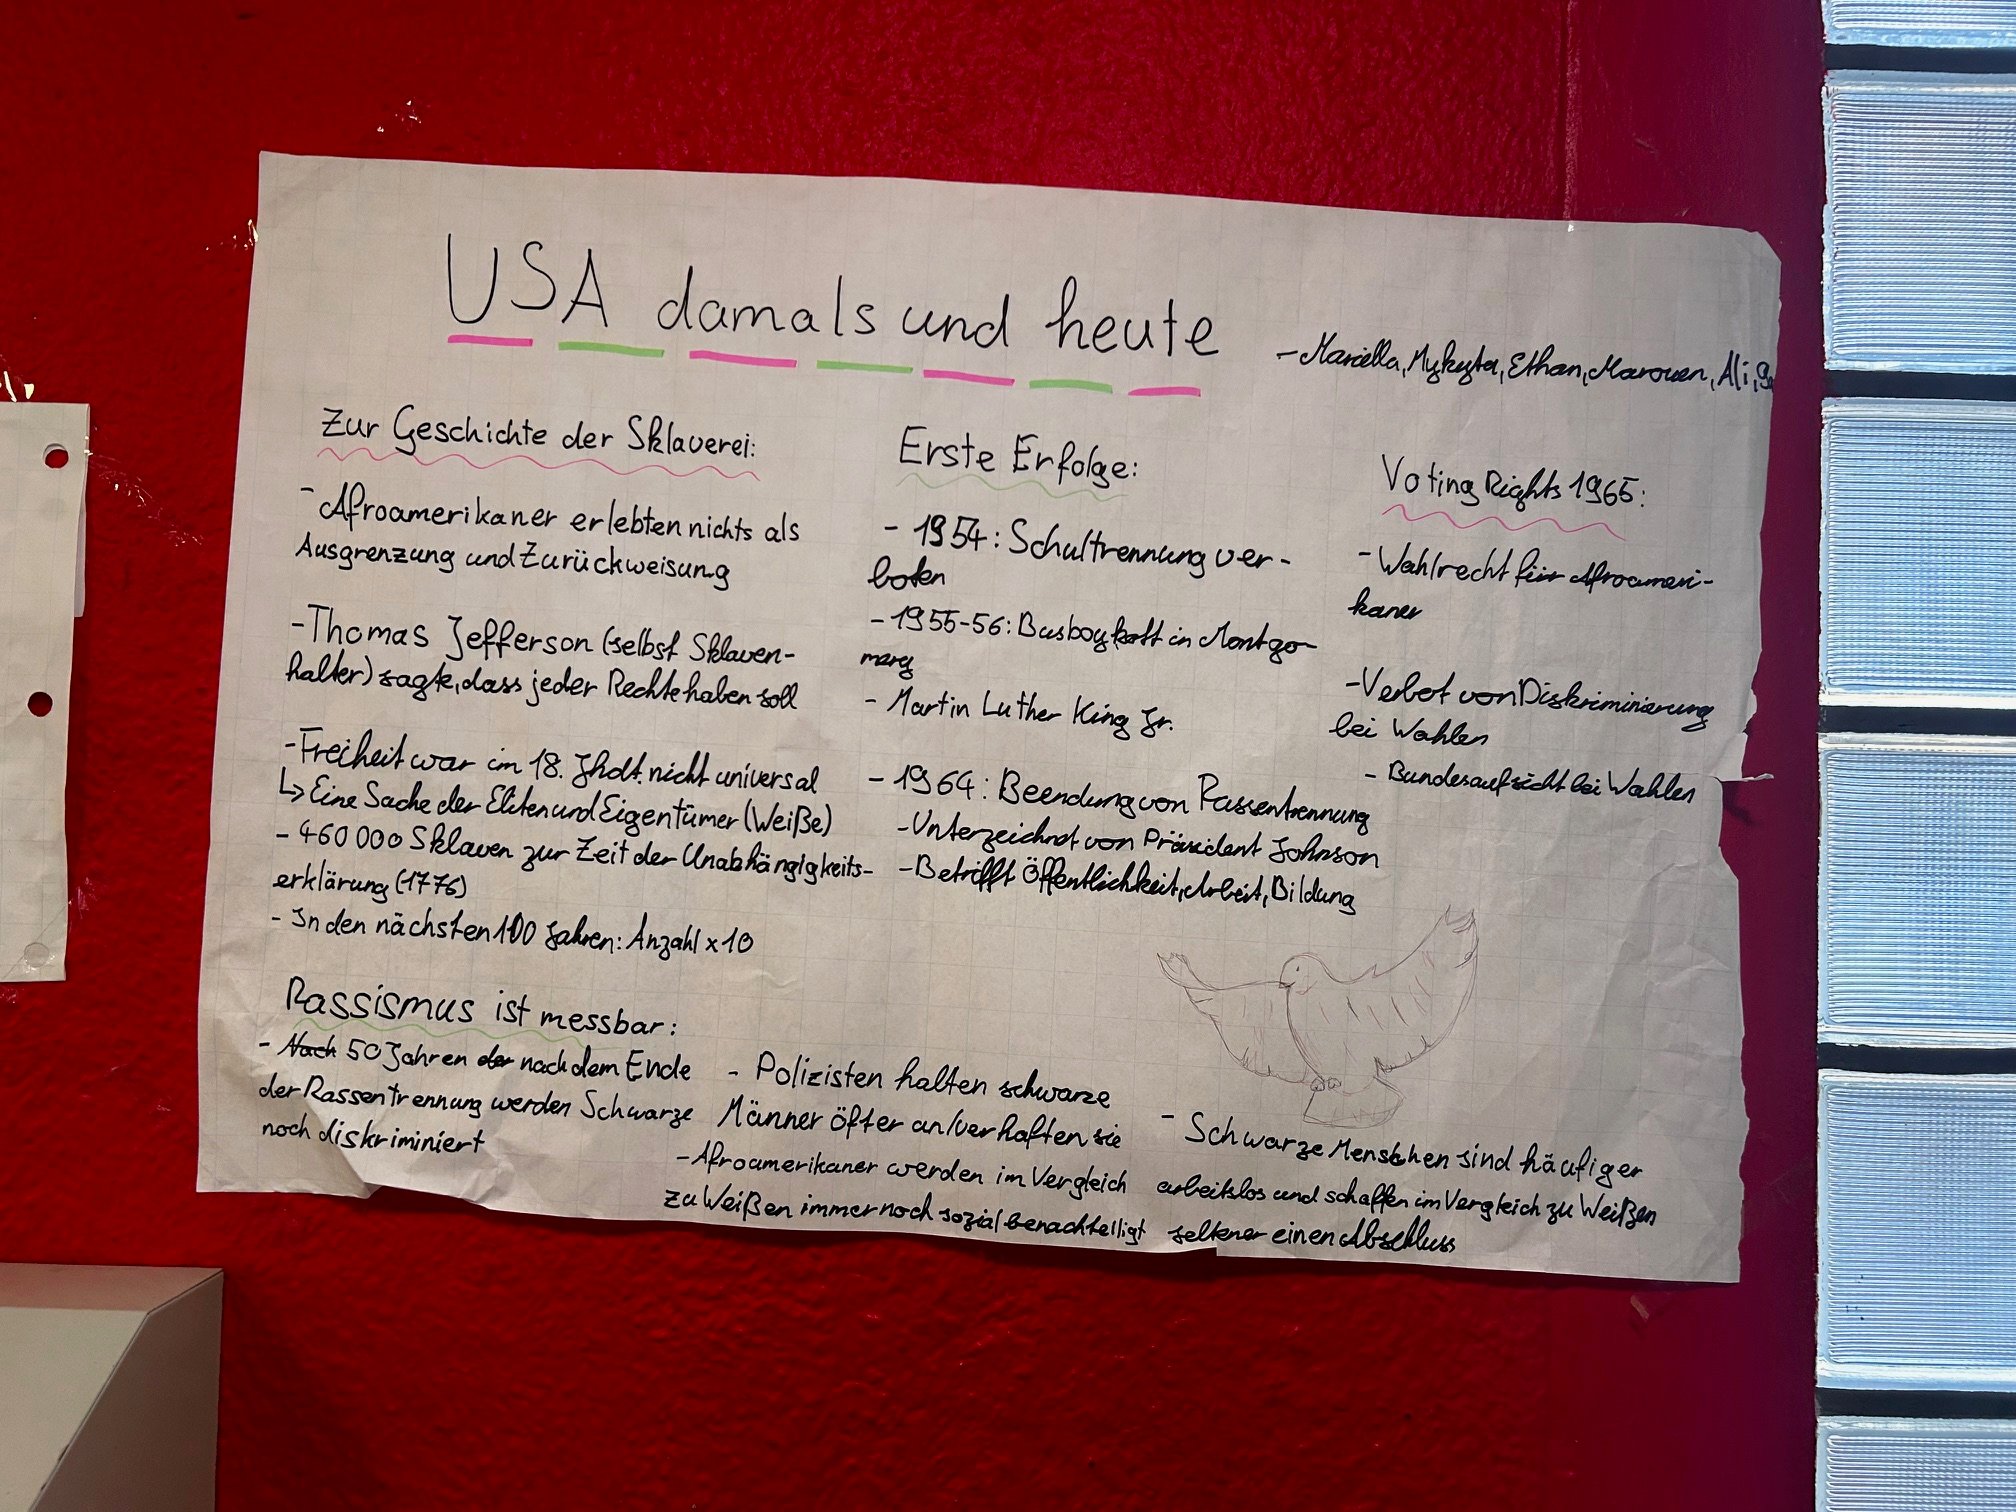 USA damals und heute
- Mariella, Mykyta, Ethan, Marouen, Ali,
Zur Geschichte der Sklaverei:
- Afroamerikaner erlebten nichts als
Ausgrenzung und Zurückweisung
- Thomas Jefferson (selbst Sklaven-
halter) sagte, dass jeder Rechte haben soll
- Freiheit war im 18. Jhdt. nicht universal
↳ Eine Sache der Eliten und Eigentümer (Weiße)
- 460 000 Sklaven zur Zeit der Unabhängigkeits-
erklärung (1776)
- In den nächsten 100 Jahren: Anzahl x 10
Erste Erfolge:
- 1954: Schultrennung ver-
boten
- 1955-56: Busboykott in Montgo-
mery
- Martin Luther King Jr.
- 1964: Beendung von Rassentrennung
- Unterzeichnet von Präsident Johnson
- Betrifft Öffentlichkeit, Arbeit, Bildung
Voting Rights 1965:
- Wahlrecht für Afroameri-
kaner
- Verbot von Diskriminierung
bei Wahlen
- Bundesaufsicht bei Wahlen
Rassismus ist messbar:
- Nach 50 Jahren der nach dem Ende
der Rassentrennung werden Schwarze
noch diskriminiert
- Polizisten halten schwarze
Männer öfter an/verhaften sie
- Afroamerikaner werden im Vergleich
zu Weißen immer noch sozial benachteiligt
- Schwarze Menschen sind häufiger
arbeitslos und schaffen im Vergleich zu Weißen
seltener einen Abschluss